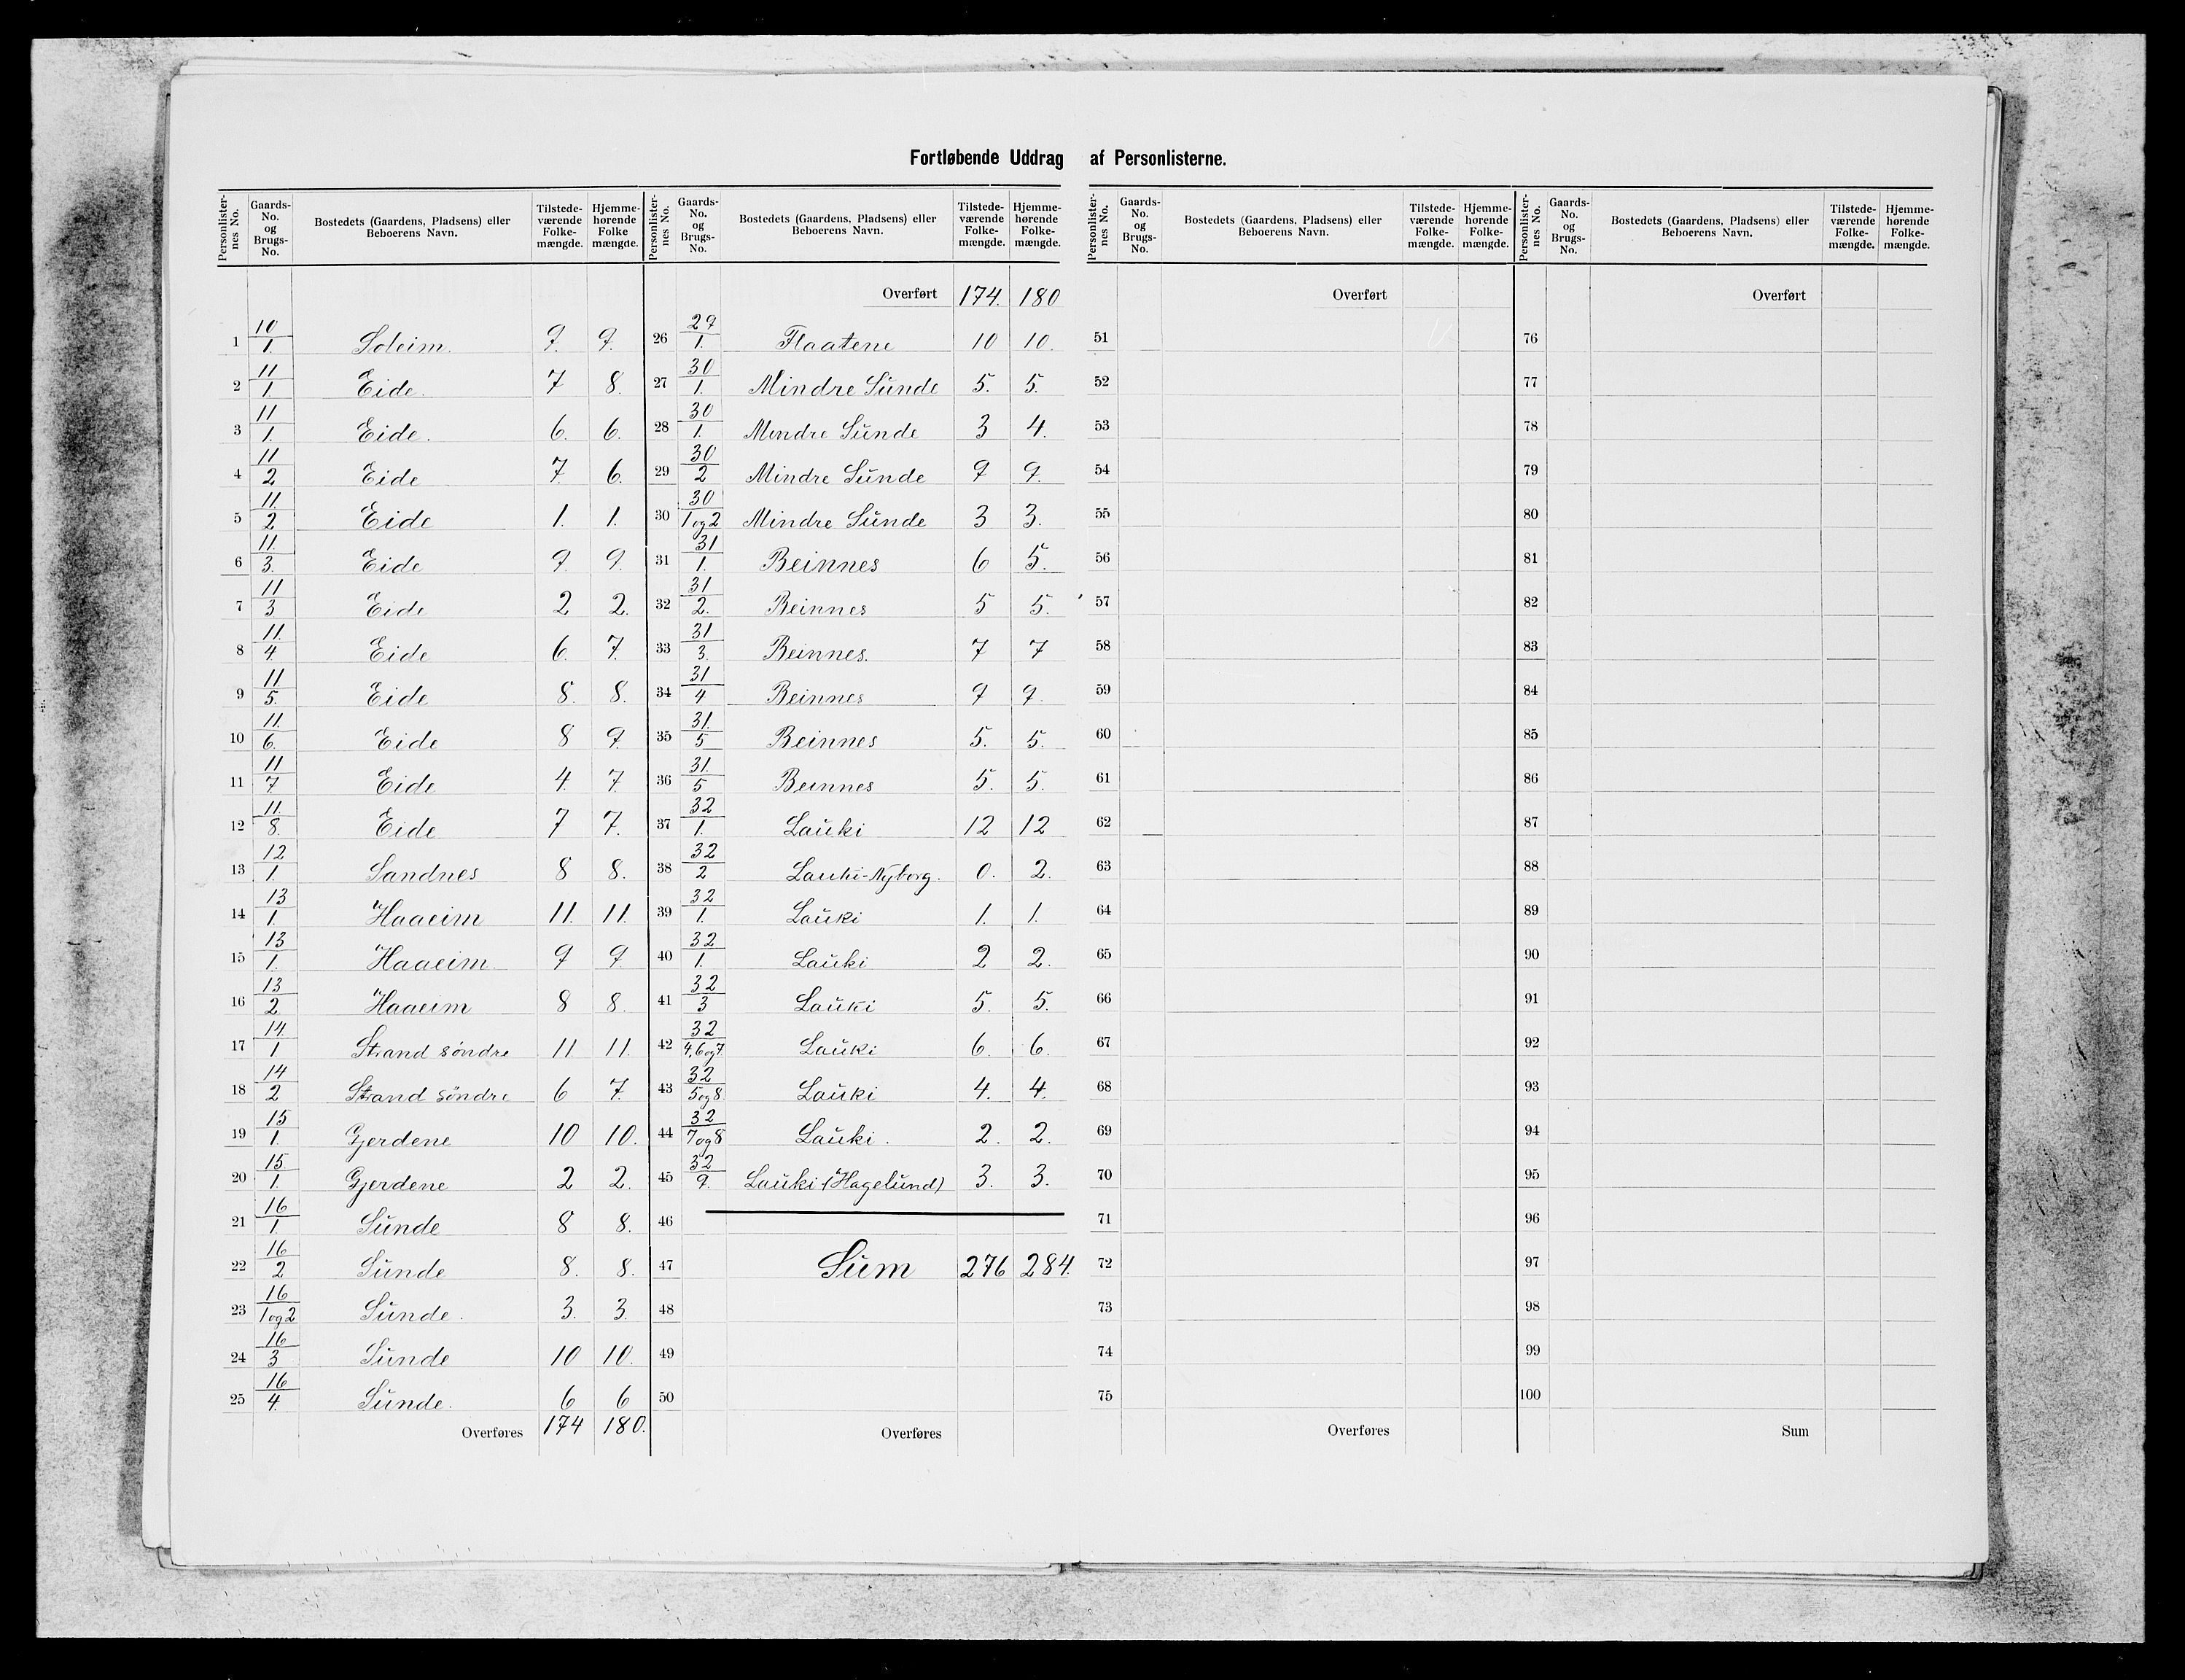 Fortløbende Uddrag af Personlisterne.
Personlister-nes No. | Gaards-No. og Brugs-No. | Bostedets (Gaardens, Pladsens) eller Beboerens Navn. | Tilstede-værende Folke-mængde. | Hjemme-hørende Folke mængde.
1 10/1. Soleim. 9. 9.
2 11/1. Eide. 7 8.
3 11/1. Eide. 6. 6.
4 11/2 Eide 7. 6.
5 11./2 Eide 1. 1.
6 11./3. Eide 9. 9.
7 11/3 Eide 2 2.
8 11./4. Eide 6. 7.
9 11/5. Eide 8. 8.
10 11./6. Eide 8 9.
11 11/7 Eide 4. 7.
12 11./8. Eide 7 7.
13 12/1. Sandnes 8 8.
14 13/1. Haaeim 11. 11.
15 13/1. Haaeim 9 9
16 13/2. Haaeim 8 8.
17 14./1 Strand søndre 11 11.
18 14/2 Strand søndre 6 7.
19 15/1. Gjerdene 10 10.
20 15./1. Gjerdene 2 2.
21 16/1. Sunde 8 8.
22 16/2 Sunde 8. 8.
23 16/1 og 2 Sunde. 3. 3.
24 16/3 Sunde 10 10.
25 16/4. Sunde. 6 6
Overføres 174 180.
Personlister-nes No. | Gaards-No. og Brugs-No. | Bostedets (Gaardens, Pladsens) eller Beboerens Navn. | Tilstede-værende Folke-mængde. | Hjemme-hørende Folke-mængde.
Overført 174. 180
26 29/1. Flaatene 10 10.
27 30/1. Mindre Sunde 5. 5.
28 30/1. Mindre Sunde 3 4.
29 30/2 Mindre Sunde 9 9.
30 30/1 og 2 Mindre Sunde 3 3.
31 31/1. Beinnes 6 5.
32 31/2. Beinnes 5 5.
33 31/3. Beinnes. 7 7
34 31/4 Beinnes 9 9.
35 31./5 Beinnes 5. 5.
36 31./5 Beinnes 5. 5.
37 32/1. Lauki 12 12
38 32/2 Lauki-Nyborg. 0. 2.
39 32/1. Lauki 1. 1.
40 32/1. Lauki 2 2.
41 32/3 Lauki 5. 5.
42 32/4, 6 og 7. Lauki 6. 6.
43 32/5 og 8. Lauki 4. 4.
44 32/7 og 8 Lauki. 2. 2.
45 32/9. Lauki (Hagelund) 3. 3.
46
47 Sum 276 284.
48
49
50
Overføres
Personlister-nes No. | Gaards-No. og Brugs-No. | Bostedets (Gaardens, Pladsens) eller Beboerens Navn. | Tilstede-værende Folke-mængde. | Hjemme-hørende Folke-mængde.
Overført
51
52
53
54
55
56
57
58
59
60
61
62
63
64
65
66
67
68
69
70
71
72
73
74
75
Overføres
Personlister-nes No. | Gaards-No. og Brugs-No. | Bostedets (Gaardens, Pladsens) eller Beboerens Navn. | Tilstede-værende Folke-mængde. | Hjemme-hørende Folke-mængde.
Overført
76
77
78
79
80
81
82
83
84
85
86
87
88
89
90
91
92
93
94
95
96
97
98
99
100
Sum